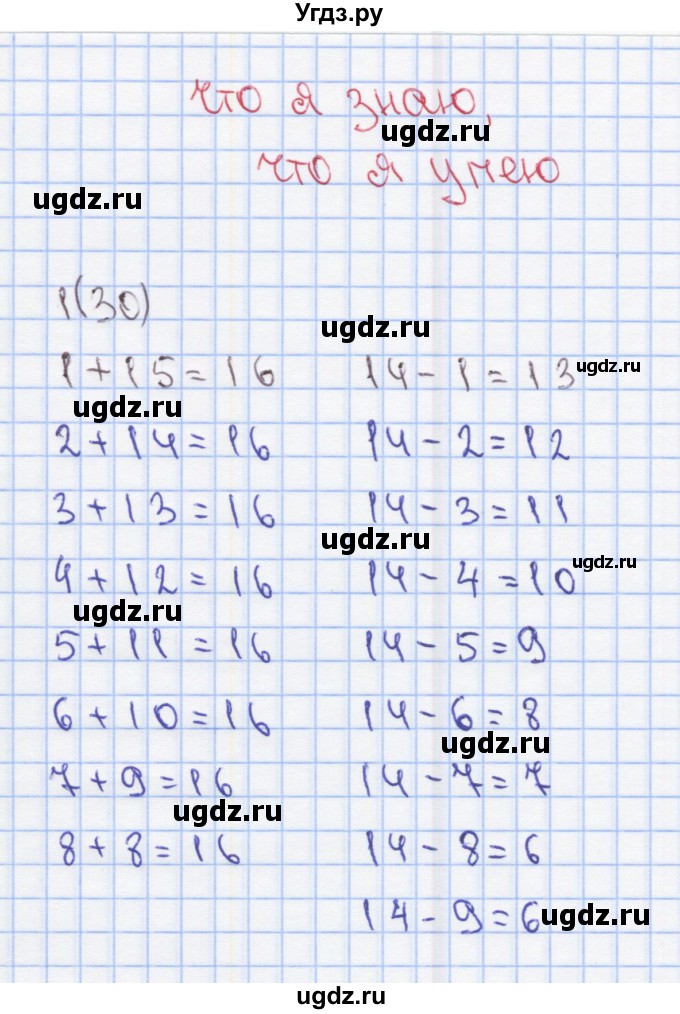 Угдз.ру
что я знаю,
ugdz.ru
что я умею
ugdz.ru
1(30)
ugdz.ru
1 + 15 = 16 14 - 1 = 13 ugdz.ru
ugdz.ru
2 + 14 = 16 14 - 2 = 12
3 + 13 = 16 14 - 3 = 11
ugdz.ru
4 + 12 = 16 14 - 4 = 10 ugdz.ru
ugdz.ru
5 + 11 = 16 14 - 5 = 9
6 + 10 = 16 14 - 6 = 8
ugdz.ru
7 + 9 = 16 14 - 7 = 7
ugdz.ru
8 + 8 = 16 14 - 8 = 6
14 - 9 = 6 ugdz.ru
ugdz.ru